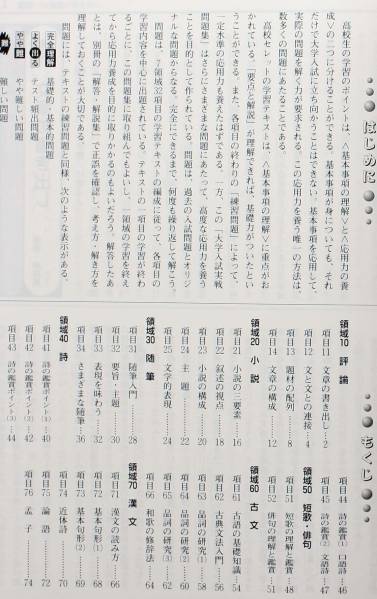 はじめに
高校生の学習のポイントは、＜基本事項の理解＞と＜応用力の養
成＞の二つに分けることができる。基本事項が身についても、それ
だけで大学入試に立ち向かうことはできない。基本事項を応用して、
実際の問題を解く力が要求される。この応用力を養う唯一の方法は、
数多くの問題にあたることである。
高校セレットの学習テキストは、＜基本事項の理解＞に重点がお
かれている。「要点と解説」が理解できれば、基礎力がついたとい
うことができる。また、各項目の終わりの「練習問題」によって、
一定水準の応用力も養えたはずである。一方、この「大学入試実戦
問題集」はさらにさまざまな問題にあたって、高度な応用力を養う
ことを目的として作られている。問題は、過去の入試問題とオリジ
ナルな問題からなる。完全にできるまで、何度も繰り返して解こう。
問題は、7領域32項目の学習テキストの編成に従って、各項目の
学習内容を中心に出題されている。テキストの一項目の学習が終わ
るごとに、この問題集に取り組んでもよいし、一領域の学習を終え
てから応用力養成を目的に取りかかるのもよいだろう。解答したあ
とは、別冊の「解答・解説集」で正誤を確認し、考え方、解き方を
理解しておくことが大切である。
問題には、テキストの練習問題と同様、次のような表示がある。
完全理解 基礎的・基本的問題
よく出る テスト頻出問題
やや難 やや難しい問題
難 難しい問題
もくじ
領域10 評論
項目11 文章の書き出し……2
項目12 文と文との連接……4
項目13 題材の配列……8
項目14 文章の構成……12
領域20 小説
項目21 小説の三要素……16
項目22 叙述の視点……18
項目23 小説の構成……20
項目24 主題……22
項目25 文学的表現……24
領域30 随筆
項目31 随筆入門……28
項目32 要旨・主題……30
項目33 表現を味わう……32
項目34 さまざまな随筆……36
領域40 詩
項目41 詩の鑑賞ポイント(1)……40
項目42 詩の鑑賞ポイント(2)……42
項目43 詩の鑑賞ポイント(3)……44
項目44 詩の鑑賞(1) 口語詩……46
項目45 詩の鑑賞(2) 文語詩……47
領域50 短歌・俳句
項目51 短歌の理解と鑑賞……48
項目52 俳句の理解と鑑賞……51
領域60 古文
項目61 古語の基礎知識……54
項目62 古典文法入門……56
項目63 品詞の研究(1)……58
項目64 品詞の研究(2)……60
項目65 品詞の研究(3)……62
項目66 和歌の修辞法……64
領域70 漢文
項目71 漢文の読み方……66
項目72 基本句形(1)……68
項目73 基本句形(2)……69
項目74 近体詩……70
項目75 論語……72
項目76 孟子……74